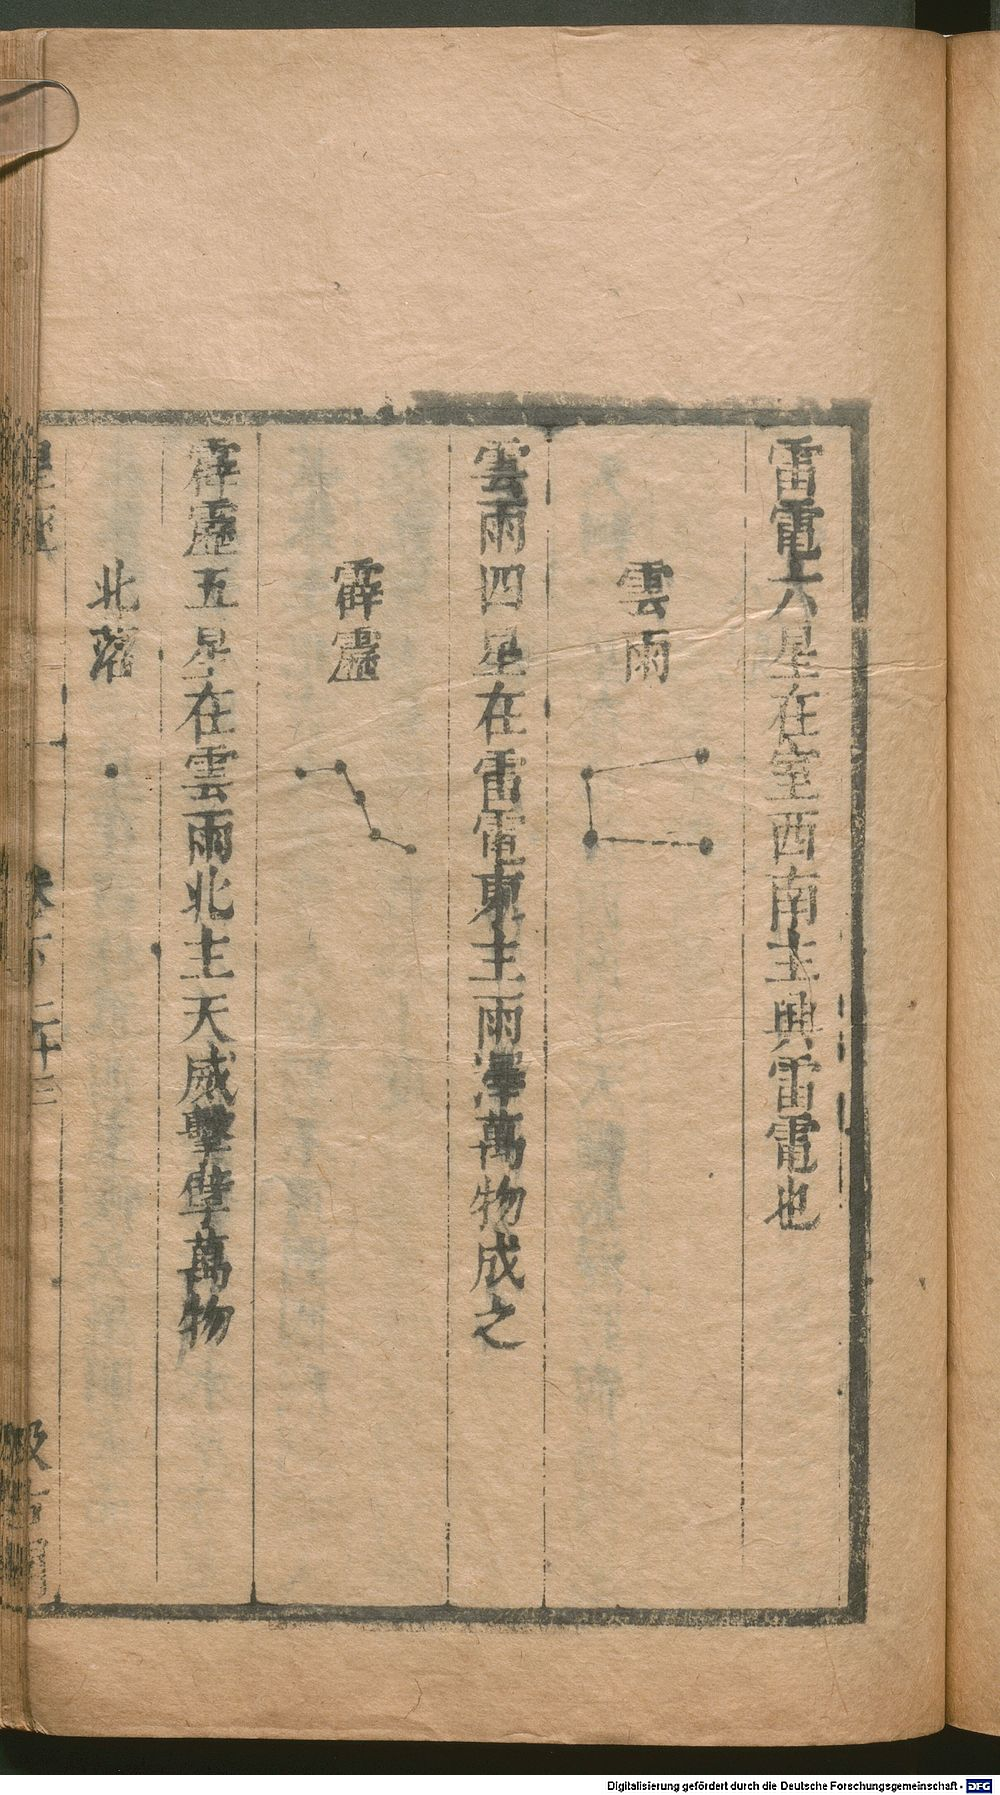 雷電六星在室西南主興雷電也
雲雨
雲雨四星在雷電東主雨澤萬物成之
霹靂
霹靂五星在雲雨北主天威擊孽萬物
北落
星經
卷下
二十三
汲古閣
Digitalisierung gefördert durch die Deutsche Forschungsgemeinschaft - DFG